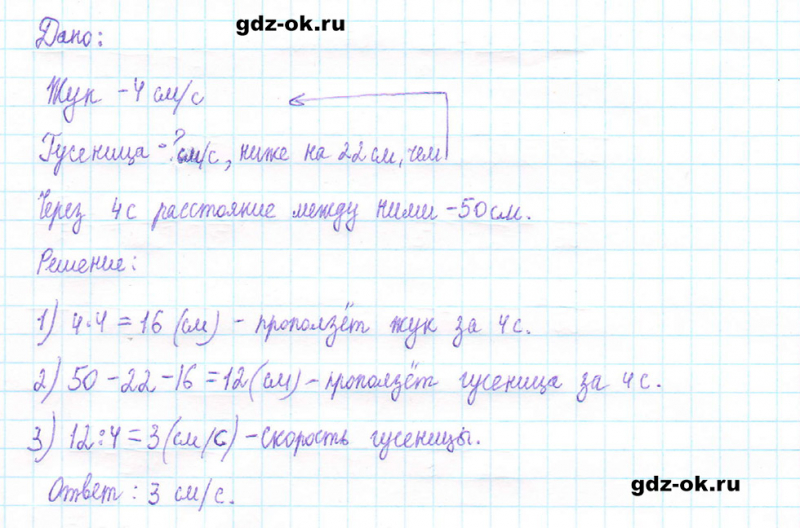 gdz-ok.ru
Дано:
gdz-ok.ru
Жук - 4 см/с
Гусеница - ? см/с, ниже на 22 см, чем
Через 4 с расстояние между ними - 50 см.
Решение:
1) 4·4 = 16 (см) - проползёт жук за 4 с.
2) 50 - 22 - 16 = 12 (см) - проползёт гусеница за 4 с.
3) 12:4 = 3 (см/с) - скорость гусеницы.
Ответ: 3 см/с.
gdz-ok.ru